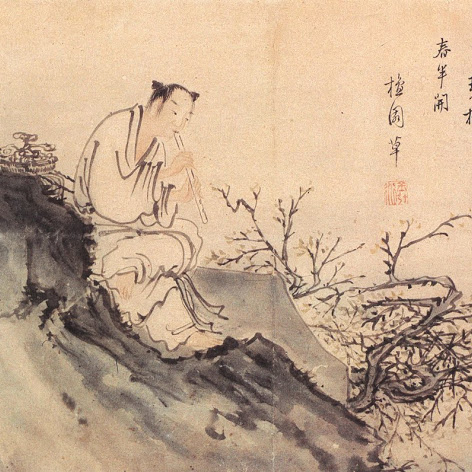 春半開
檀園草